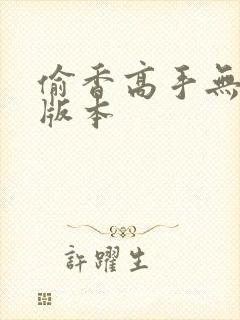 偷香高手無
版本
許躍生